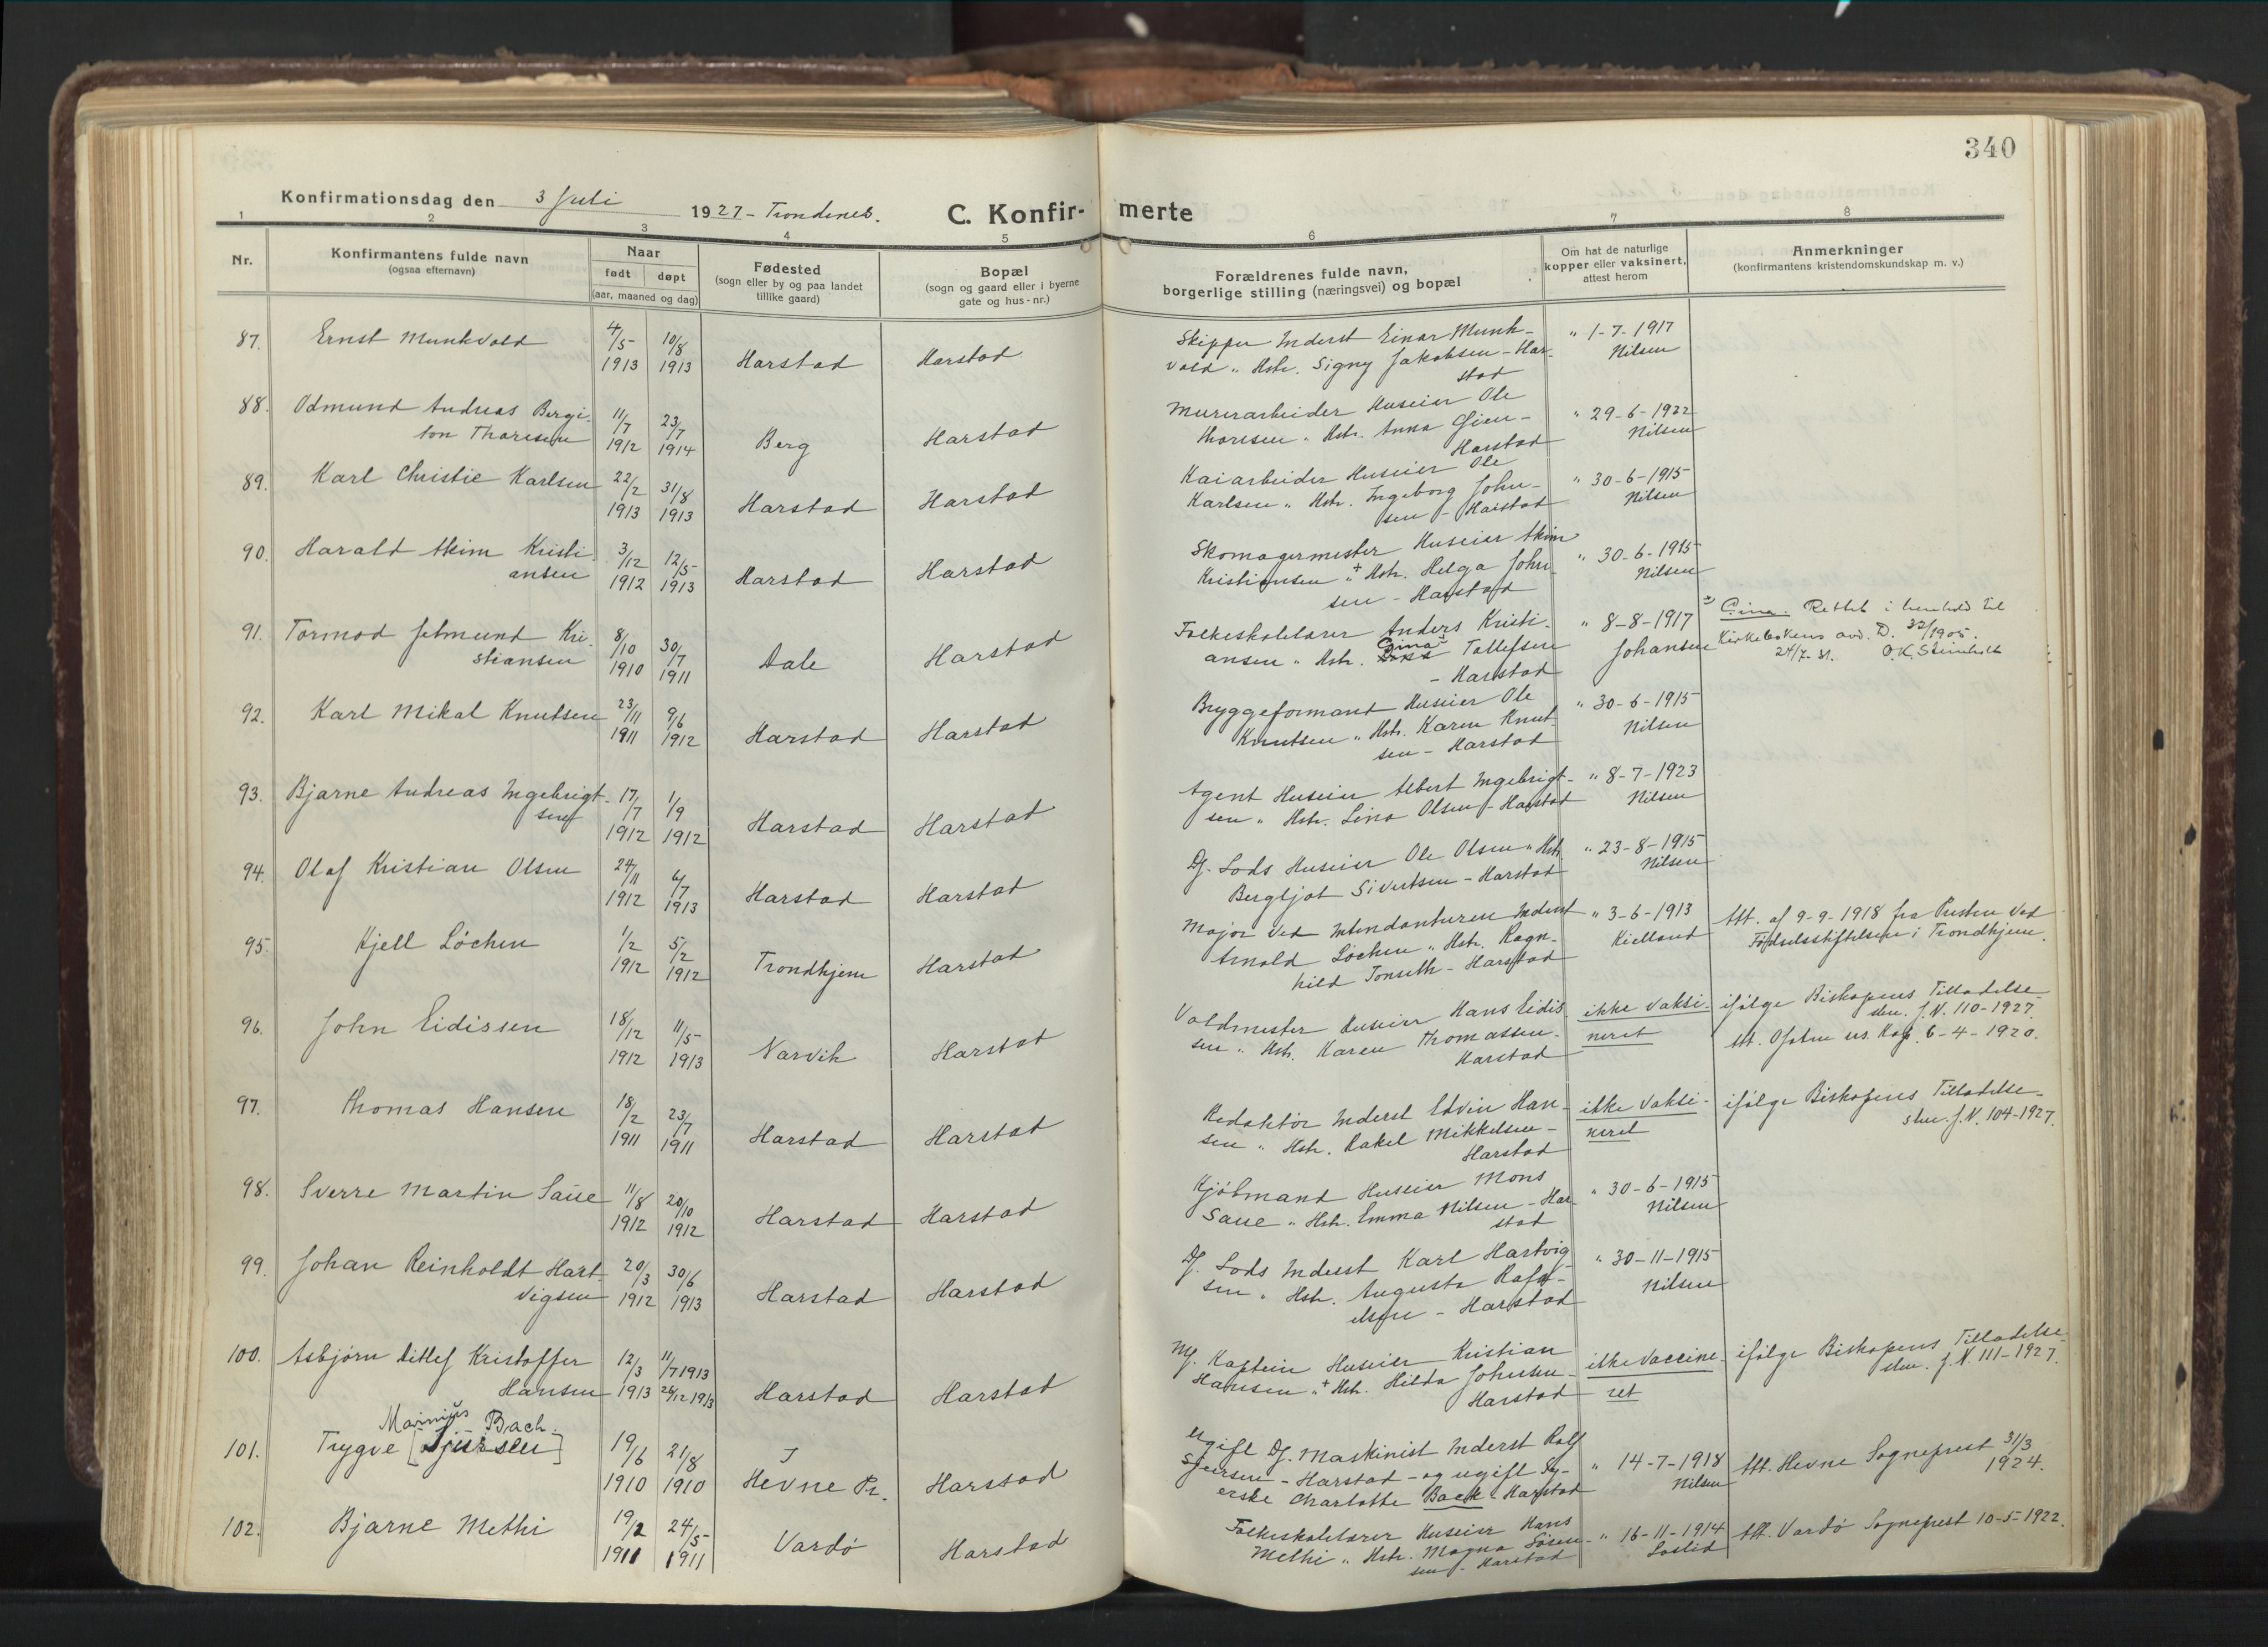 340
Konfirmationsdag den 3 Juli 1927 - Trondenes. C. Konfir- merte
1 2 3 4 5 6 7 8
Nr.
Konfirmantens fulde navn
(ogsaa efternavn)
Naar
født døpt
(aar, maaned og dag)
Fødested
(sogn eller by og paa landet
tillike gaard)
Bopæl
(sogn og gaard eller i byerne
gate og hus-nr.)
Forældrenes fulde navn,
borgerlige stilling (næringsvei) og bopæl
Om hat de naturlige
kopper eller vaksinert,
attest herom
Anmerkninger
(konfirmantens kristendomskundskap m. v.)
87. Ernst Munkvold 4/5 1913 10/8 1913 Harstad Harstad
Skipper Inderst Einar Munk-
vold " Hstr. Signy Jakobsen - Har-
stad
" 1-7-1917
Nilsen
88. Odmund Andreas Bergi-
ton Thoresen 11/7 1912 23/7 1914 Berg Harstad
Murerarbeider Huseier Ole
Thoresen " Hstr. Anna
Harstad
" 29-6-1922
Nilsen
89. Karl Christie Karlsen 22/2 1913 31/8 1913 Harstad Harstad
Kaiarbeider Huseier Ole
Karlsen " Hstr. Ingeborg John-
sen - Harstad
" 30-6-1915
Nilsen
90. Harald Akim Kristi-
ansen 3/12 1912 12/5 1913 Harstad Harstad
Skomagermester Huseier Akim
Kristiansen " + Hstr. Helga John-
sen - Harstad
" 30-6-1915
Nilsen
91. Tormod Jetmund Kri-
stiansen 8/10 1910 30/7 1911 Dale Harstad
Folkeskolelærer Anders Kristi-
ansen " Hstr. Gina Tollefsen
- Harstad
" 8-8-1917
Johansen
Gina. Rettet i henhold til
Kirkebokens avd. D. 32/1905.
24/7-31. O.K. Steinholt
92. Karl Mikal Knutsen 23/11 1911 9/6 1912 Harstad Harstad
Bryggeformand Huseier Ole
Knutsen " Hstr. Karen Knut-
sen - Harstad
" 30-6-1915
Nilsen
93. Bjarne Andreas Ingebrigt-
sen 17/7 1912 1/9 1912 Harstad Harstad
Agent Huseier Albert Ingebrigt-
sen " Hstr. Lina Olsen - Harstad
" 8-7-1923
Nilsen
94. Olaf Kristian Olsen 24/11 1912 6/7 1913 Harstad Harstad
Df. Lods Huseier Ole Olsen " Hstr.
Bergljot Sivertsen - Harstad
" 23-8-1915
Nilsen
95. Kjell Løchen 1/2 1912 5/2 1912 Trondhjem Harstad
Major ved Intendanturen Inderst
Arnold Løchen " Hstr. Ragn-
hild Tonseth - Harstad
" 3-6-1913
Kielland
Att. af 9-9-1918 fra Presten ved
Fødselsstiftelsen i Trondhjem.
96. John Eidissen 18/12 1912 11/5 1913 Narvik Harstad
Voldmester Huseier Hans Eidis-
sen " Hstr. Karen Thomassen -
Harstad
ikke vaksi-
neret
ifølge Biskopens Tilladelse
skr. J.N. 110-1927.
Att. Ofoten res. Kap. 6-4-1920.
97. Thomas Hansen 18/2 1911 23/7 1911 Harstad Harstad
Redaktør Inderst Edvin Han-
sen " Hstr. Rakel Mikkelsen -
Harstad
ikke vaksi-
neret
ifølge Biskopens Tilladelse
skr. J.N. 104-1927.
98. Sverre Martin Saue 11/8 1912 20/10 1912 Harstad Harstad
Kjøbmand Huseier Mons
Saue " Hstr. Emma Nilsen - Har-
stad
" 30-6-1915
Nilsen
99. Johan Reinholdt Hart-
vigsen 20/3 1912 30/6 1913 Harstad Harstad
Df. Lods Inderst Karl Hartvig-
sen " Hstr. Augusta Rafa-
elsen - Harstad
" 30-11-1915
Nilsen
100. Asbjørn Ditlef Kristoffer
Hansen 12/3 1913 11/7 1913 26/12 1913 Harstad Harstad
Kaptein Huseier Kristian
Hansen " + Hstr. Hilda Johnsen -
Harstad
ikke vaccine-
ret
ifølge Biskopens Tilladelse
skr. J.N. 111-1927.
Marinius Bach.
101. Trygve [Sjursen] 19/6 1910 21/8 1910 Hevne Pr. Harstad
Ugift Df. Maskinist Inderst Rolf
Sjursen - Harstad - og ugift Sy-
erske Charlotte Back - Harstad
" 14-7-1918
Nilsen
Att. Hevne Sogneprest 31/3
1924.
102. Bjarne Methi 19/2 1911 24/5 1911 Vardø Harstad
Folkeskolelærer Huseier Hans
Methi " Hstr. Magna
sen - Harstad
" 16-11-1914
Att. Vardø Sogneprest 10-5-1922.